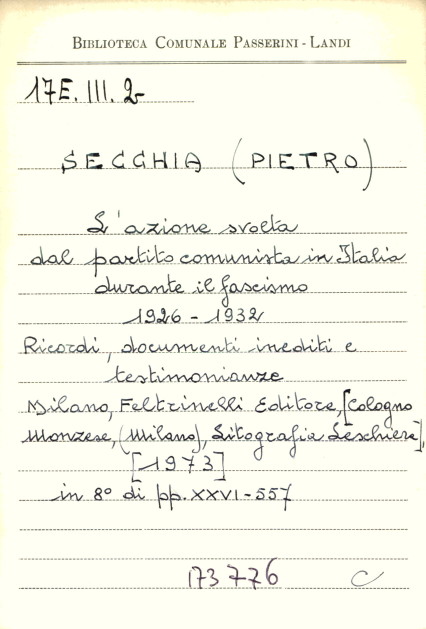 BIBLIOTECA COMUNALE PASSERINI - LANDI
17E. III. 2
SECCHIA (PIETRO)
L'azione svolta
dal partito comunista in Italia
durante il fascismo
1926 - 1932
Ricordi, documenti inediti e
testimonianze
Milano, Feltrinelli Editore, [Cologno
Monzese, (Milano), Litografia Leschiera],
[1973]
in 8° di pp. XXVI-557
173776 C